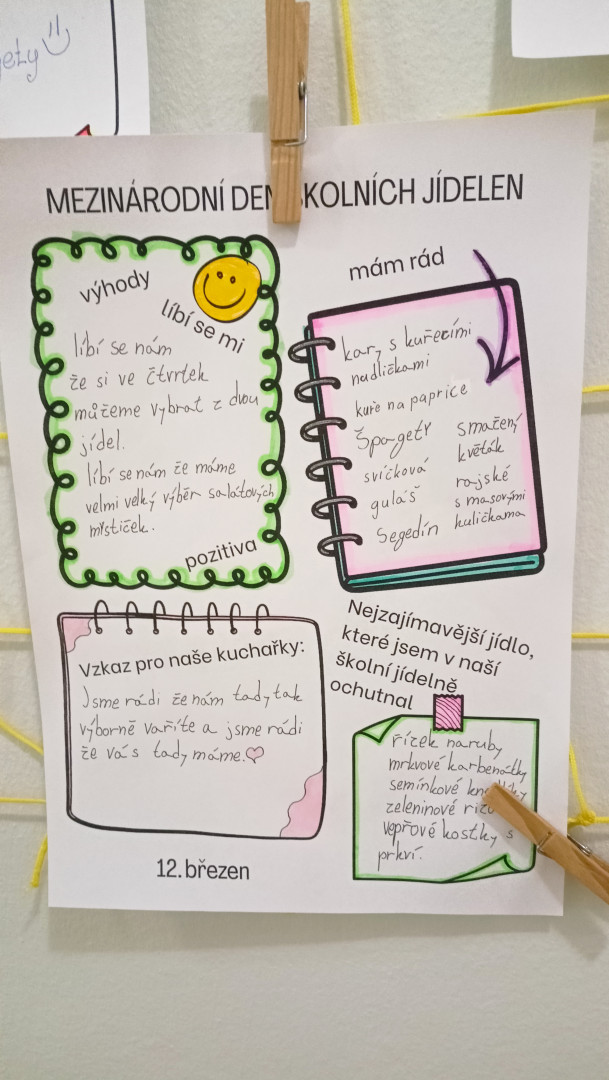 MEZINÁRODNÍ DEN ŠKOLNÍCH JÍDELEN
výhody
líbí se mi
líbí se nám
že si ve čtvrtek
můžeme vybrat z dvou
jídel.
líbí se nám že máme
velmi velký výběr salátových
mističek.
pozitiva
mám rád
kar, s kuřecími
nudličkami
kuře na paprice
Špagety
svíčková
guláš
Segedín
smažený
květák
rajské
s masovými
kuličkama
Vzkaz pro naše kuchařky:
Jsme rádi že nám tady tak
výborně vaříte a jsme rádi
že vás tady máme.
Nejzajímavější jídlo,
které jsem v naší
školní jídelně
ochutnal
řízek naruby
mrkvové karbenátky
semínkové
zeleninové
vepřové kostky s
prkví.
12. březen